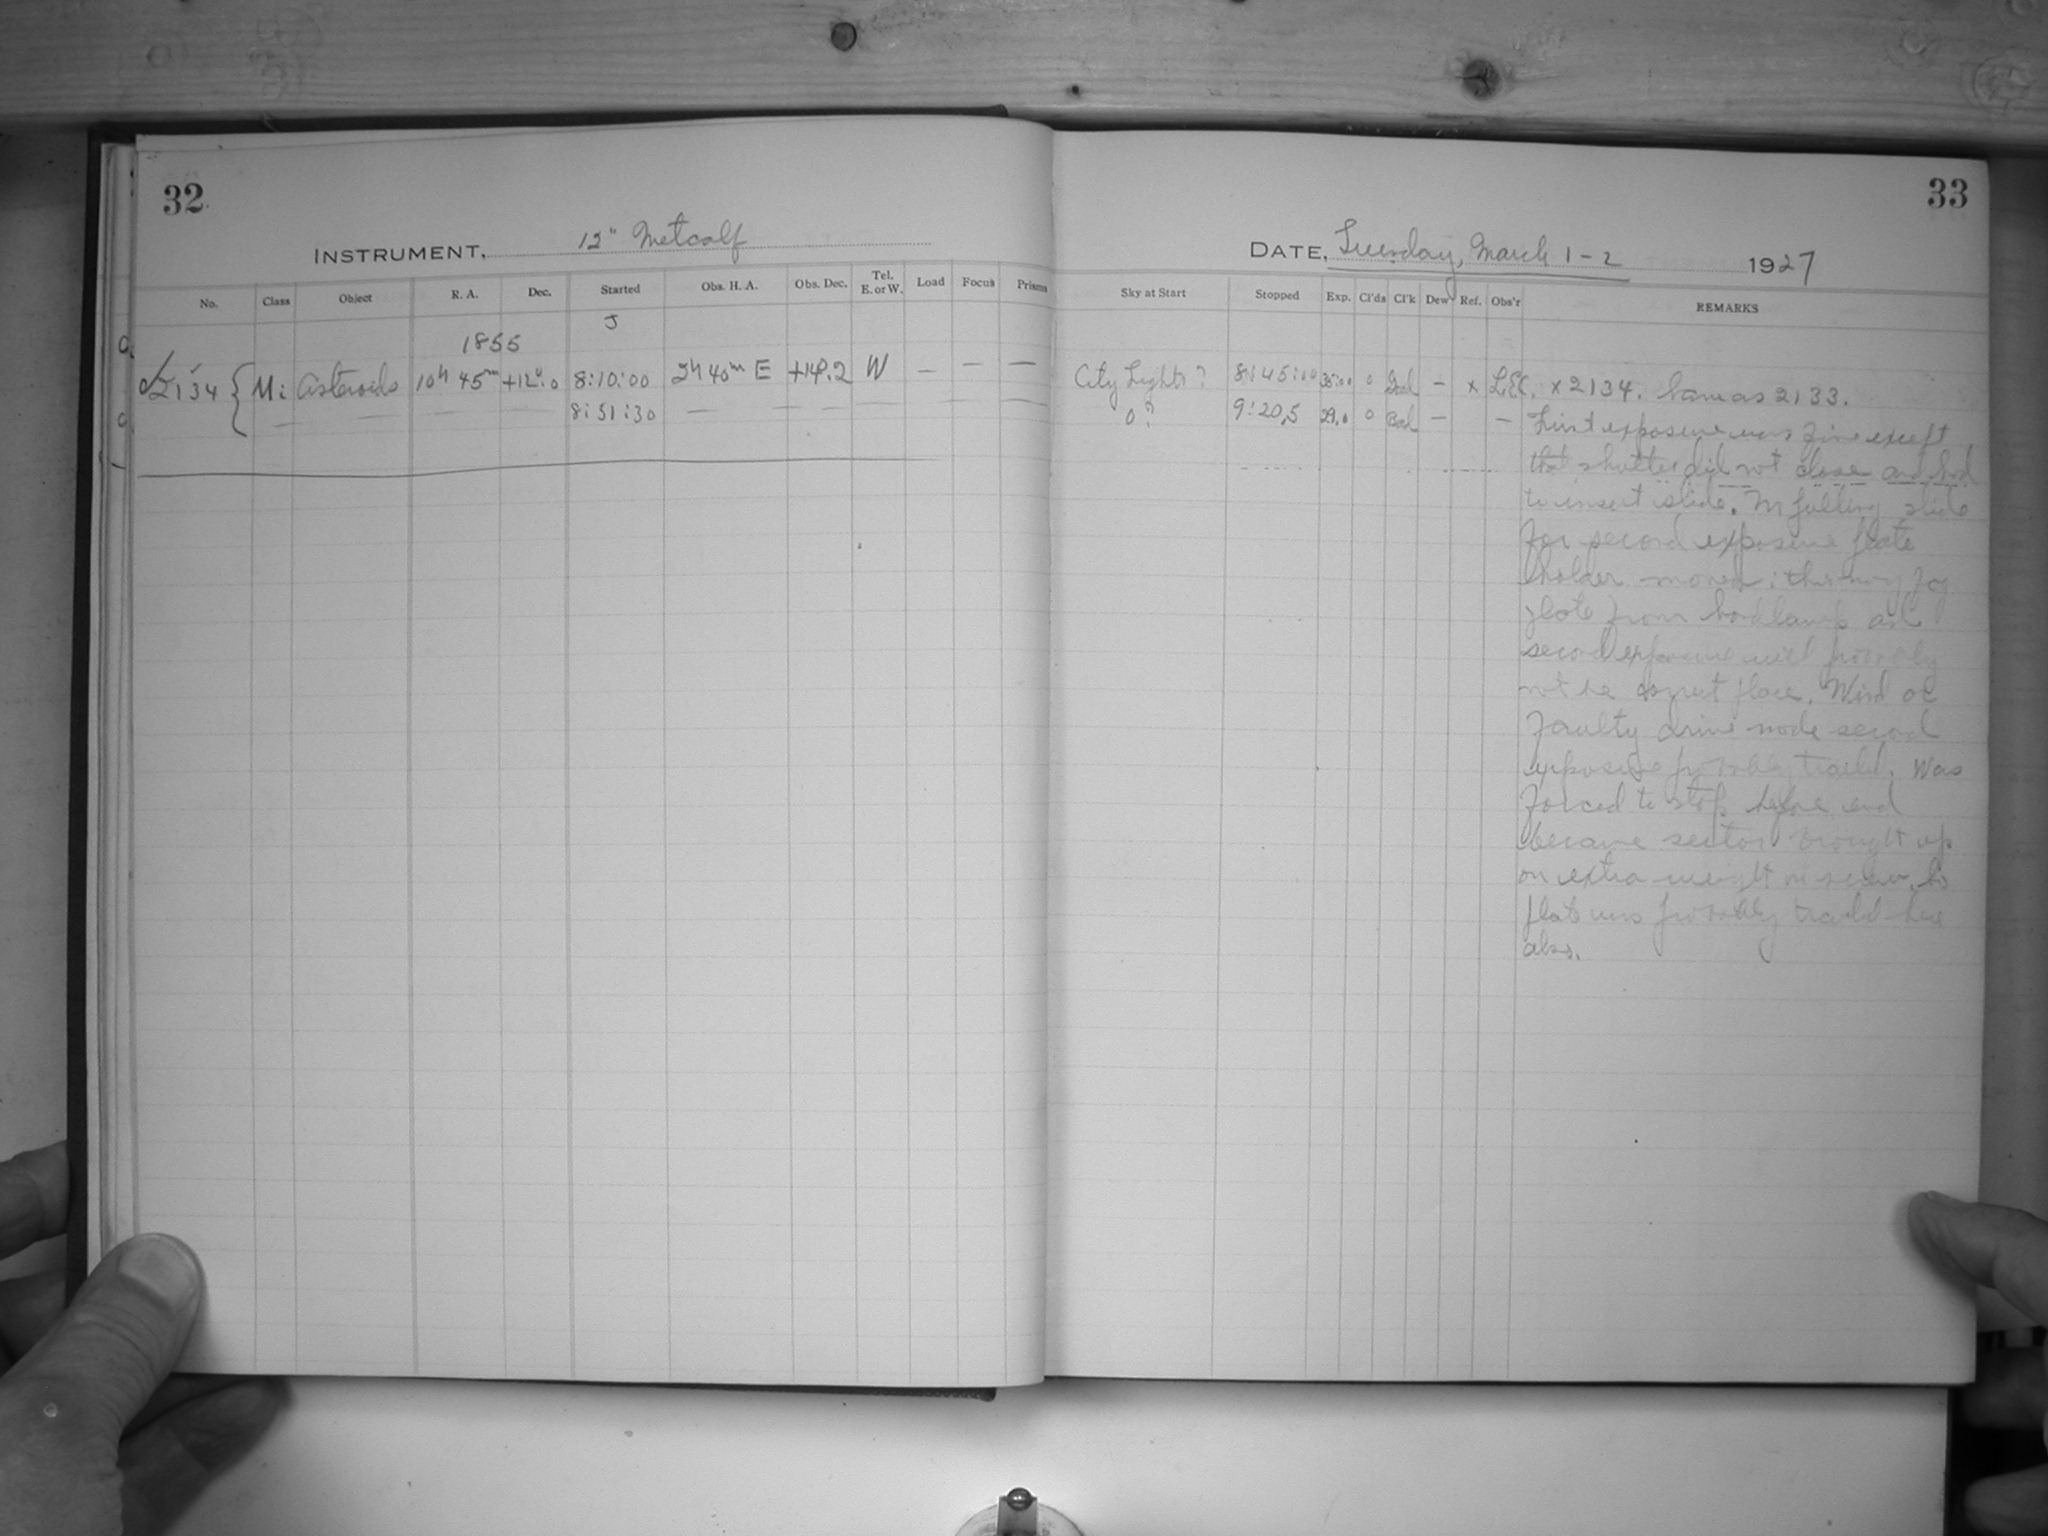 32
INSTRUMENT, 12" Metcalf
No. Class Object R. A. Dec. Started Obs. H. A. Obs. Dec. Tel. E. or W. Load Focus Prisms
J
1855
2134 { Mi Asteroids 10h 45m +12°.0 8:10:00 2h 40m E +14°.2 W — — —
— — — — 8:51:30 — — — — — —
33
DATE, Tuesday, March 1-2 1927
Sky at Start Stopped Exp. Cl'ds Cl'k Dew Ref. Obs'r REMARKS
City Lights? 8:45:00 35:00 0 — x LEC. x 2134. Same as 2133.
0? 9:20.5 29.0 0 — — First exposure was fine except
that shutter did not close and had
to insert slide. In pulling slide
for second exposure plate
holder moved; this may fog
plate from and
second exposure will probably
not be correct place. Wind or
faulty drive made second
exposure probably trailed. Was
forced to stop before end
because sector brought up
on extra weight on screw. So
plate was probably trailed here
also.